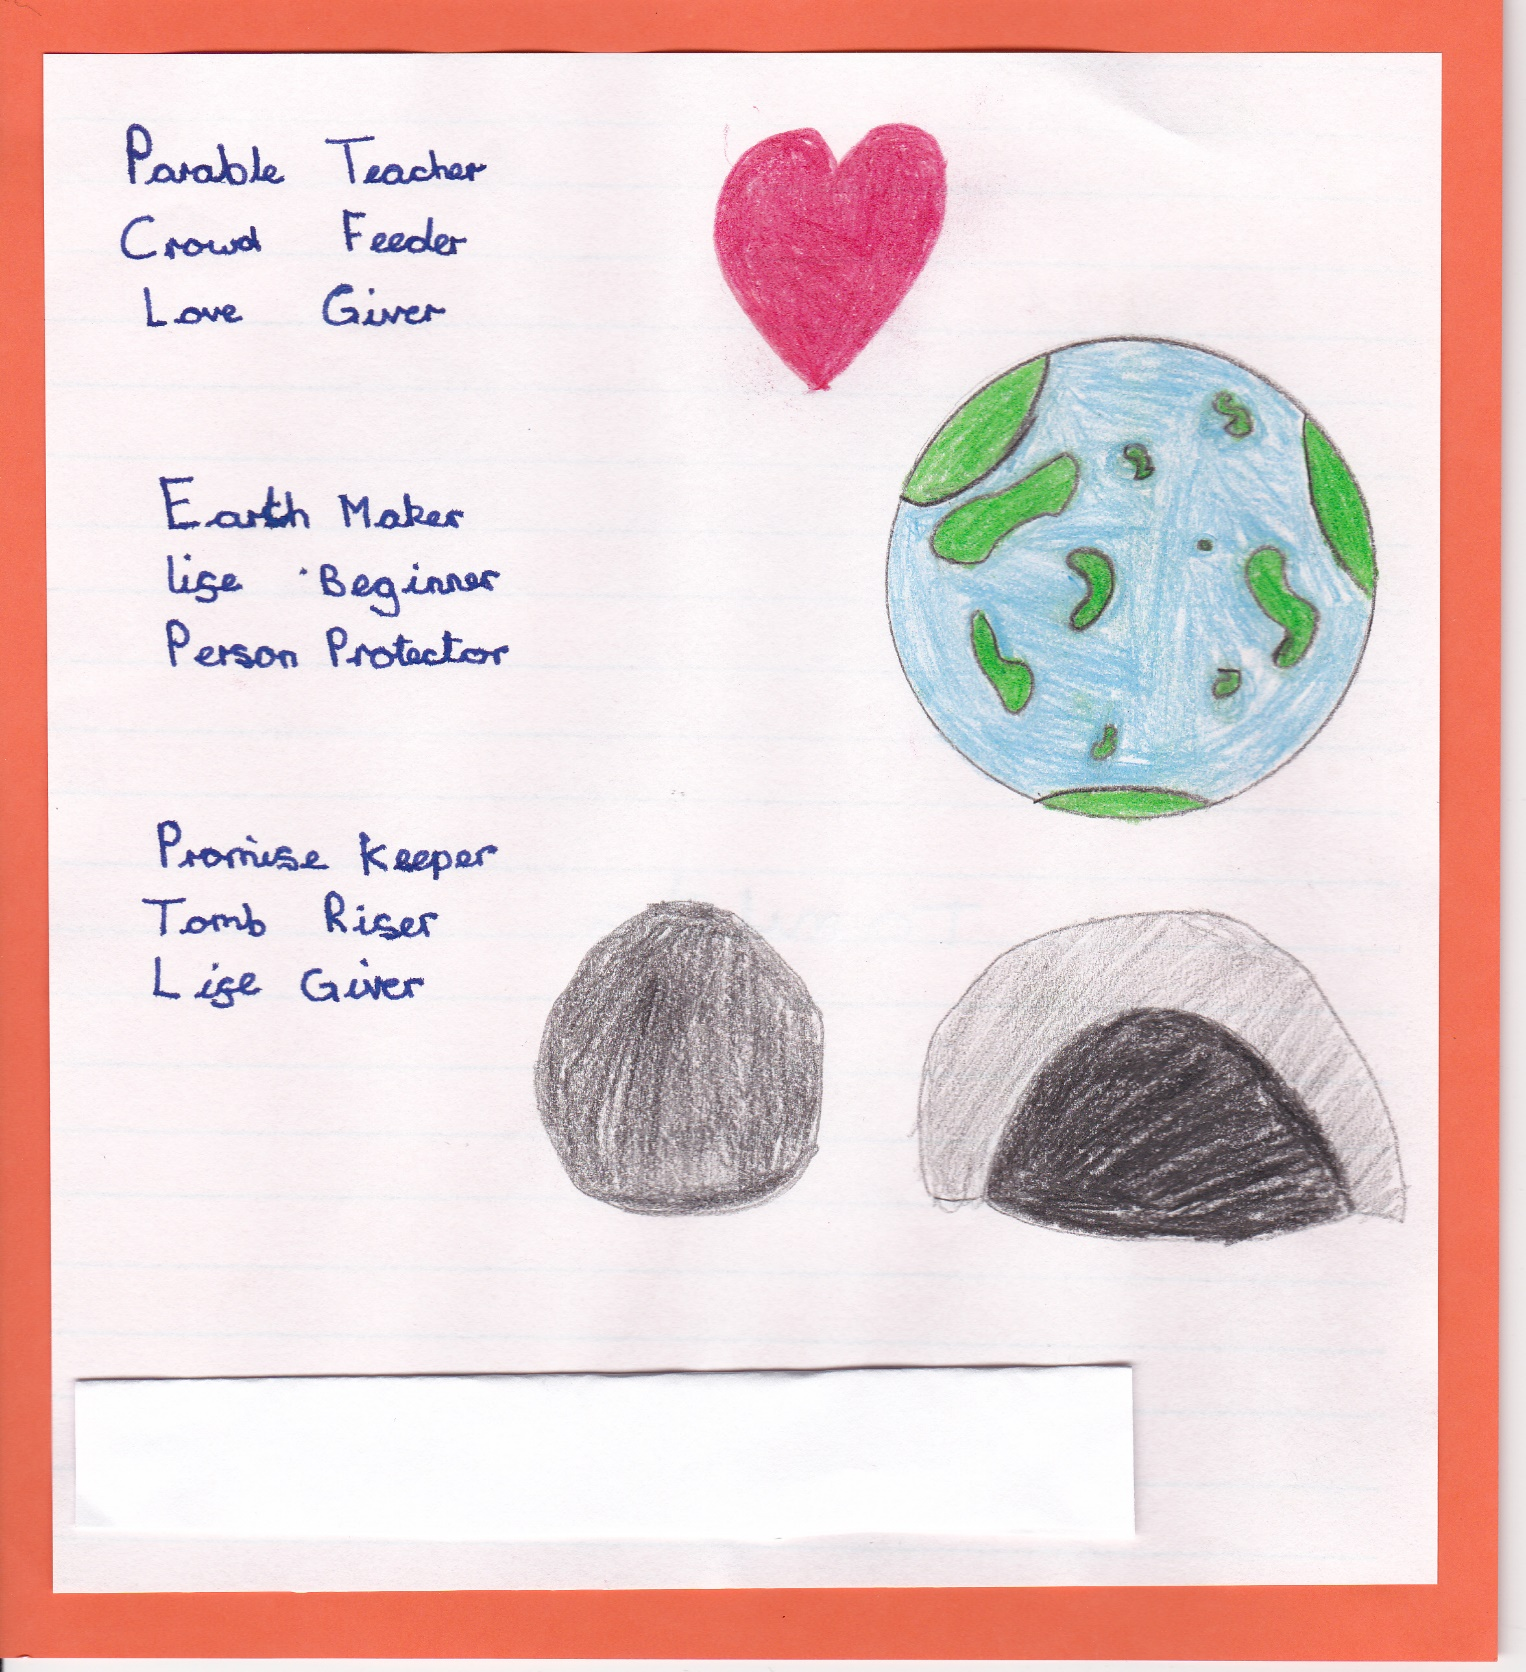 Parable Teacher
Crowd Feeder
Love Giver
Earth Maker
life Beginner
Person Protector
Promise Keeper
Tomb Riser
Life Giver